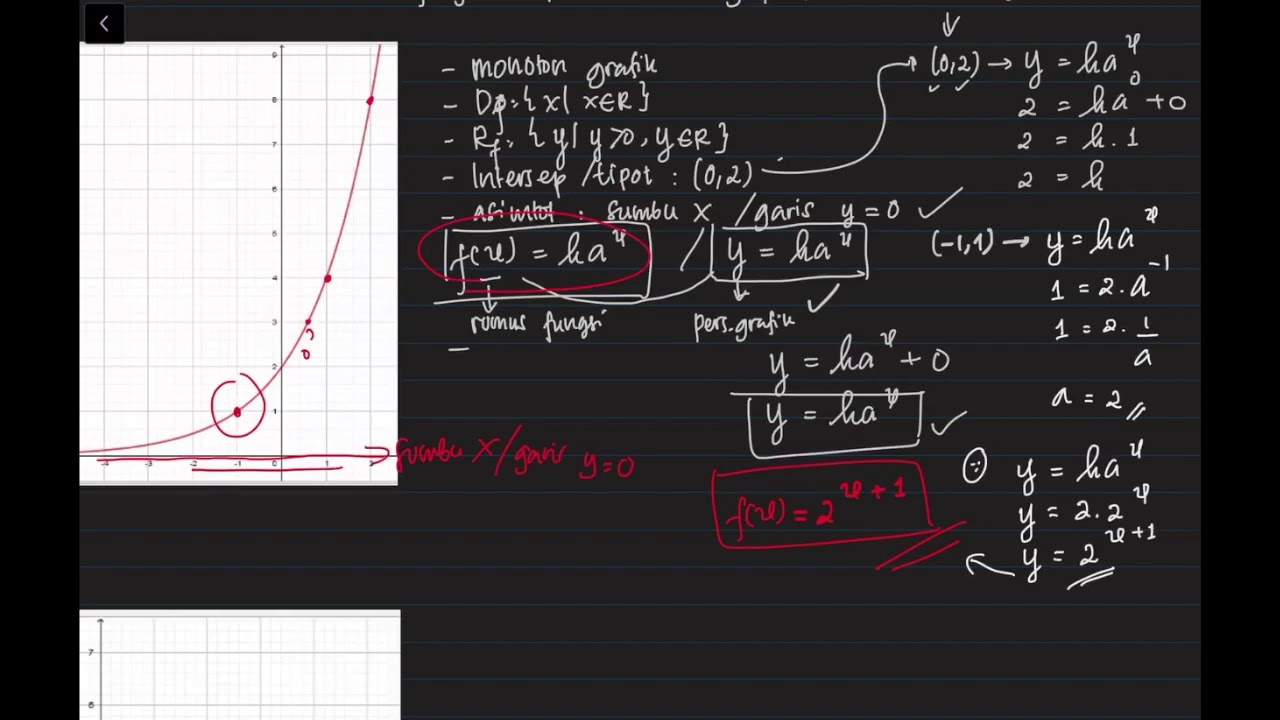 - monoton grafik
- Df:{ x| x∈R}
- Rf:{ y| y>0, y∈R}
- Intersep /tipot : (0,2)
- asimtot : sumbu X /garis y=0
f(x) = ka^x / y = ka^x
rumus fungsi
pers.grafik
y = ka^x + 0
y = ka^x
f(x) = 2^x+1
(0,2) → y = ka^x
2 = ka^0 +0
2 = k.1
2 = k
(-1,1) → y = ka^x
1 = 2.a^-1
1 = 2. 1/a
a = 2
y = ka^x
y = 2.2^x
y = 2^x+1
9
8
7
6
5
4
3
2
1
-4 -3 -2 -1 0 1 2
0
sumbu X/garis y=0
7
6